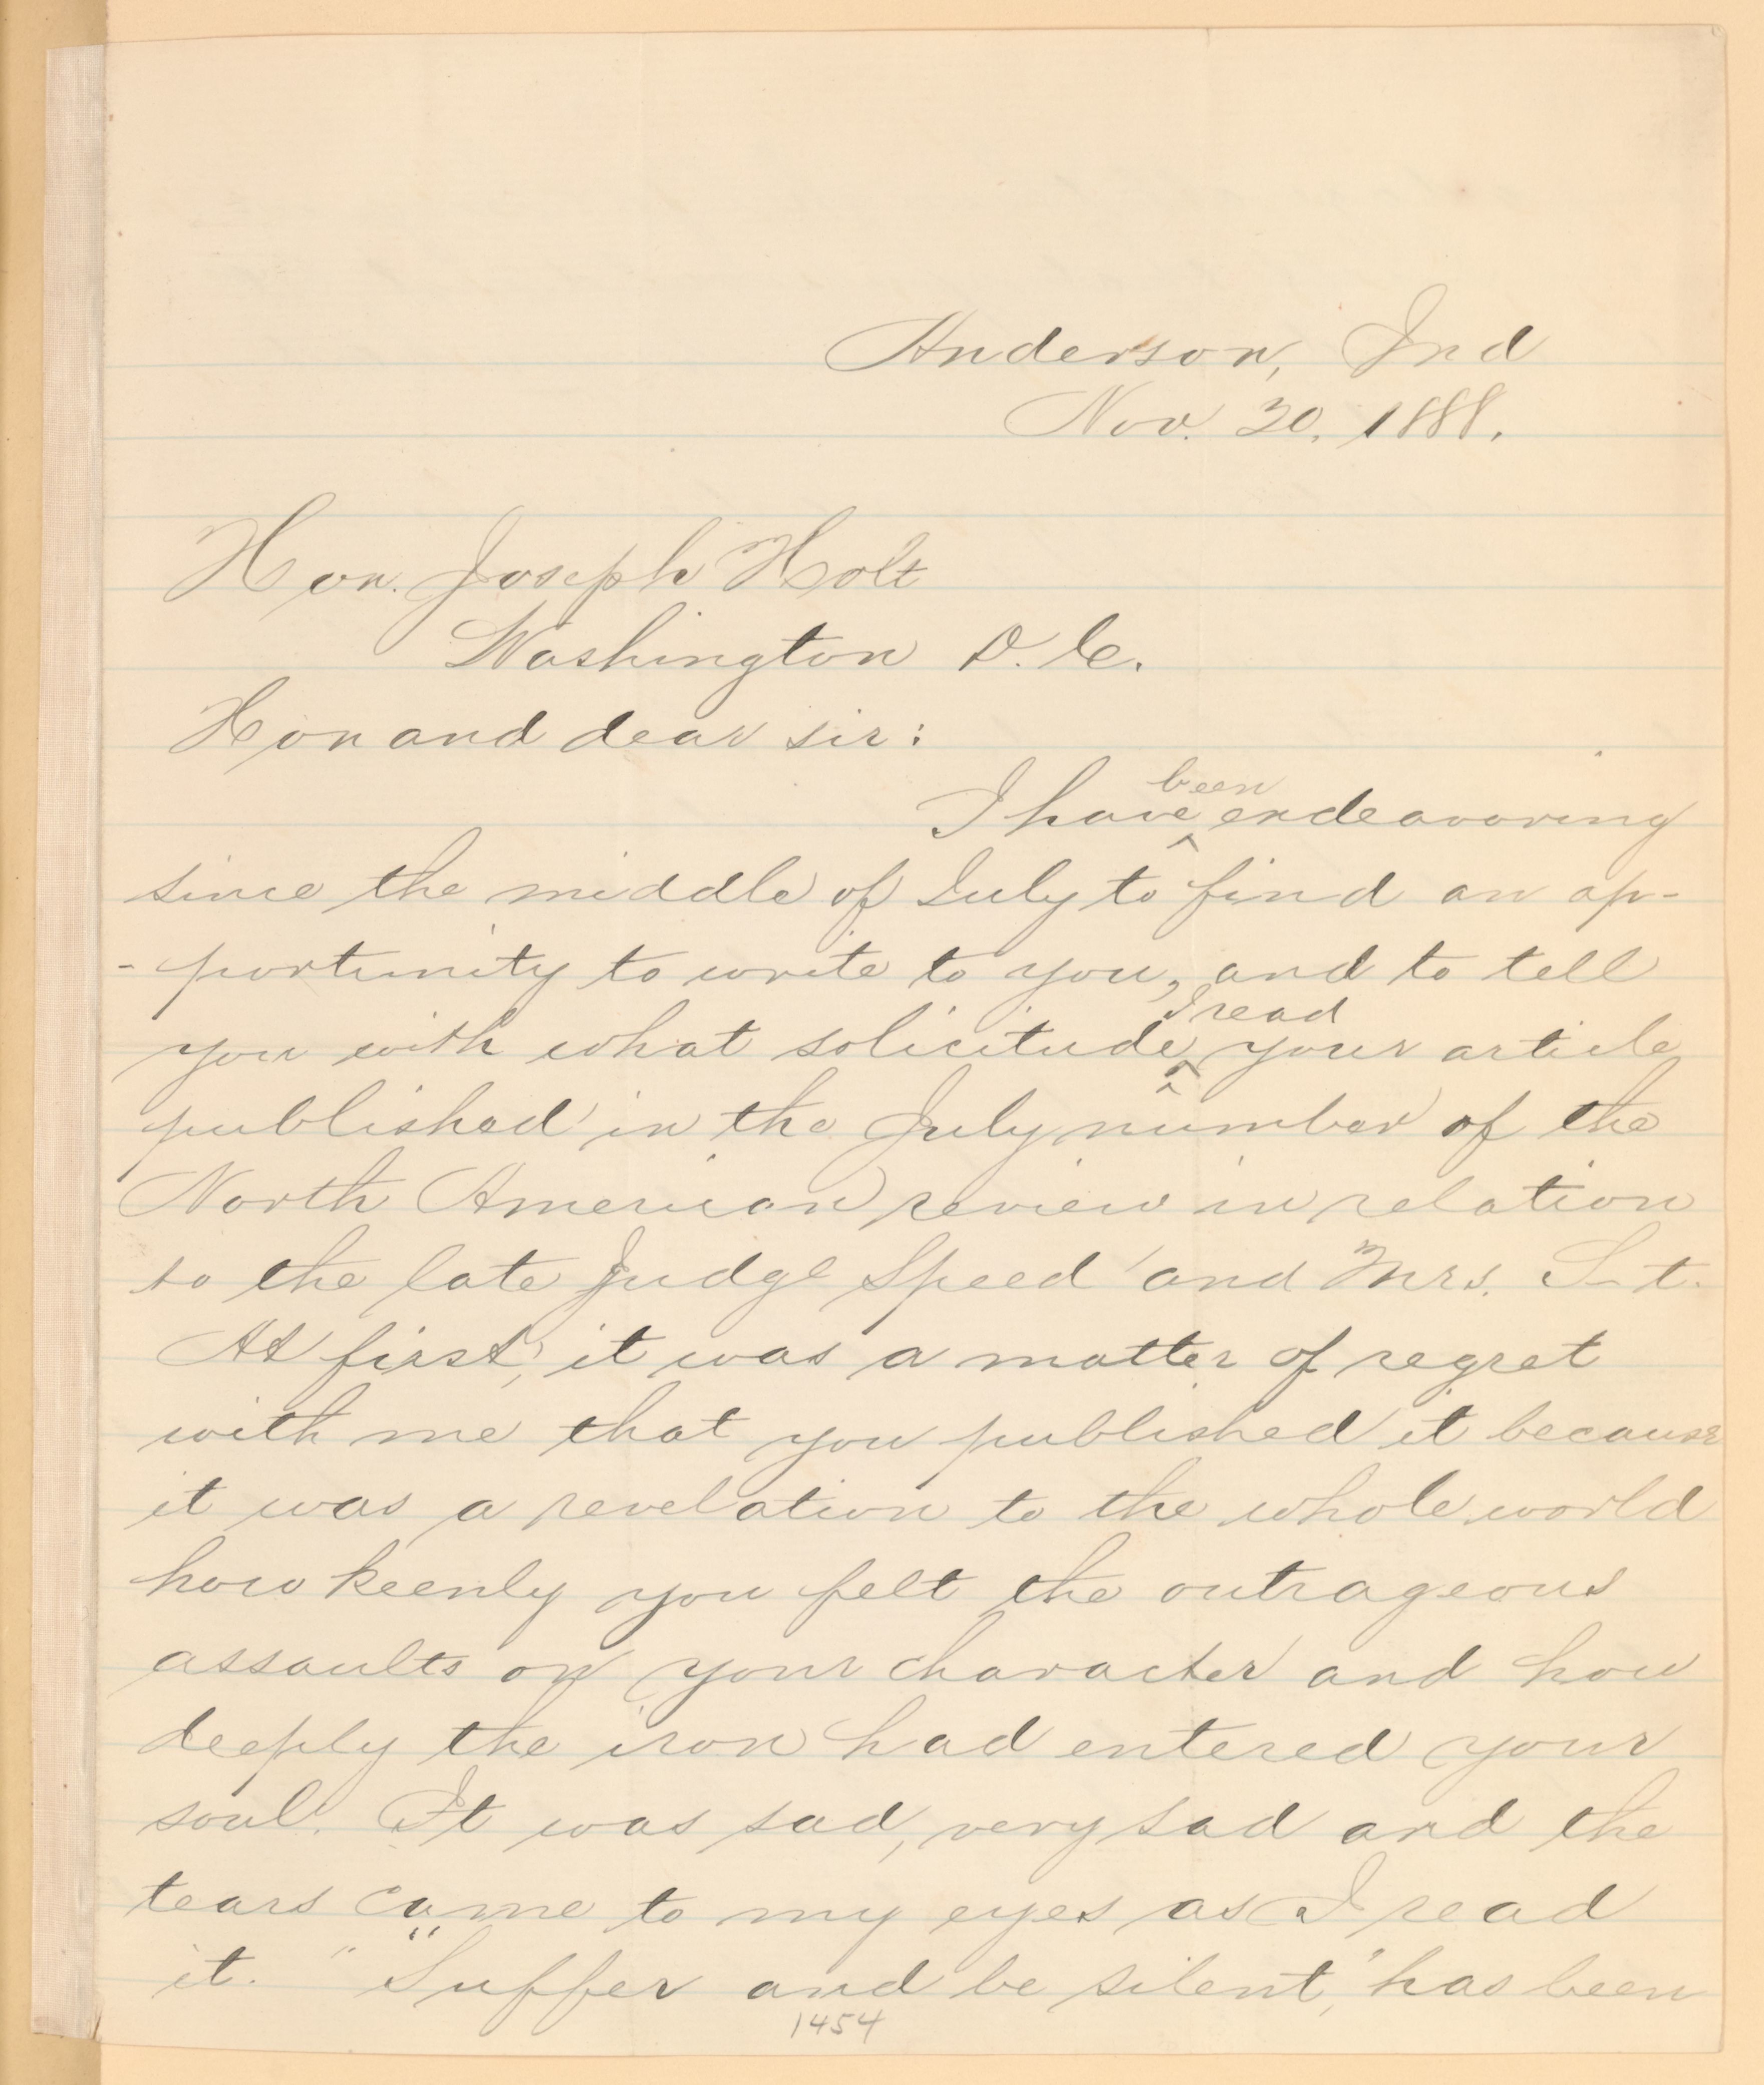 Anderson, Ind
Nov. 30. 1888.
Hon. Joseph Holt
Washington D. C.
Hon and dear sir:
I have been endeavoring
since the middle of July to find an op-
-portunity to write to you, and to tell
you with what solicitude, I read your article
published in the July number of the
North American review in relation
to the late Judge Speed and Mrs. S—t.
At first, it was a matter of regret
with me that you published it because
it was a revelation to the whole world
how keenly you felt the outrageous
assaults on your character and how
deeply the iron had entered your
soul. It was sad, very sad and the
tears came to my eyes as I read
it. "Suffer and be silent," has been
1454